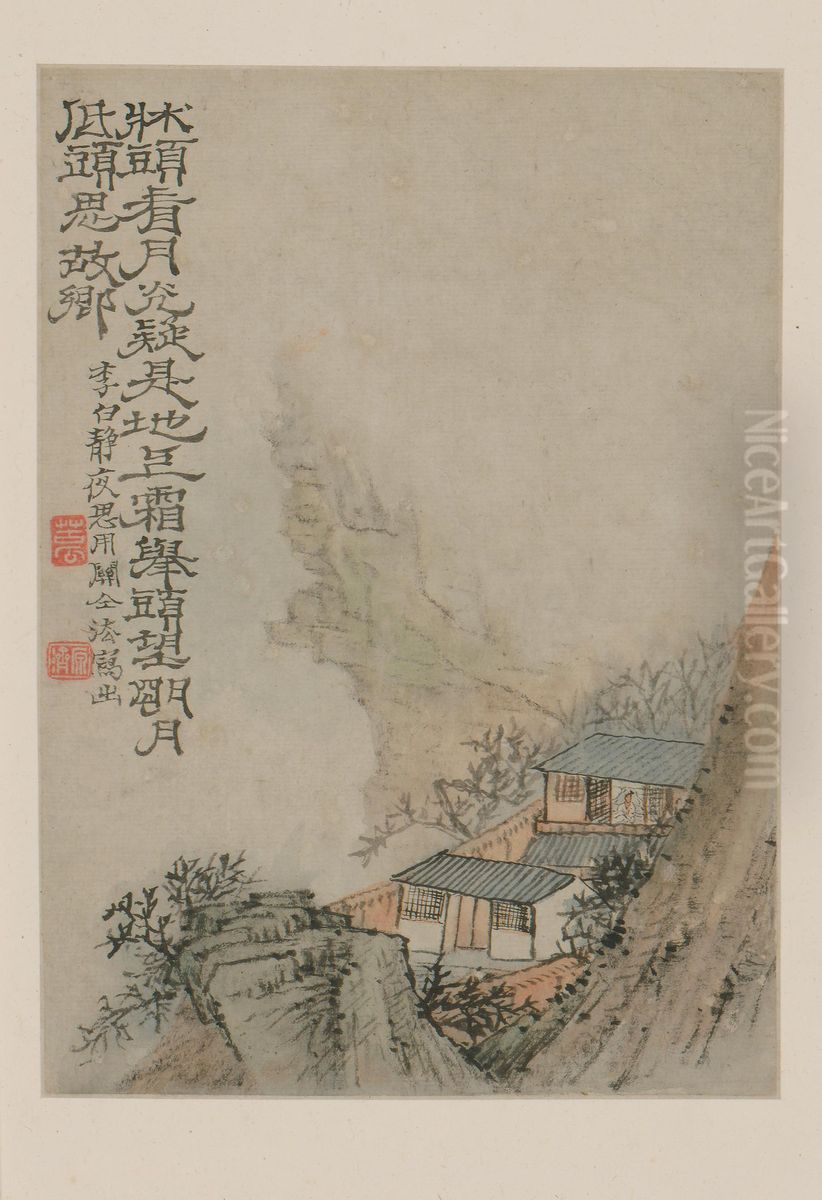 牀頭看月光疑是地上霜舉頭望朙月
低頭思故鄉
李白靜夜思用關仝法寫出
原濟
NiceArtGallery.com